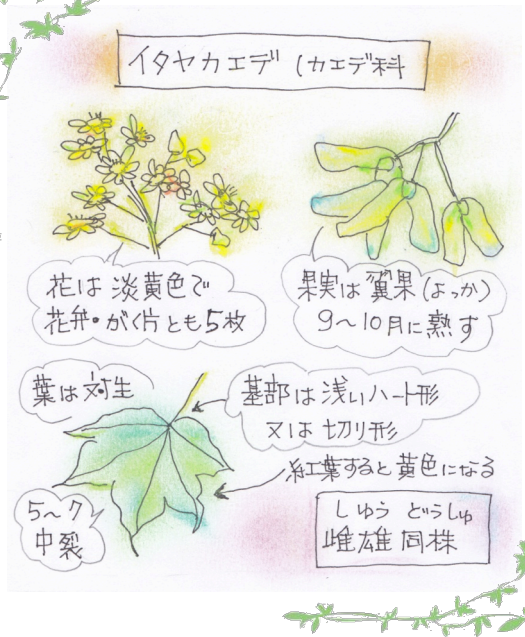 イタヤカエデ (カエデ科
花は淡黄色で
花弁・がく片とも5枚
果実は翼果(よっか)
9〜10月に熟す
葉は対生
基部は浅いハート形
又は切り形
紅葉すると黄色になる
5〜7
中裂
しゆう どうしゅ
雌雄同株